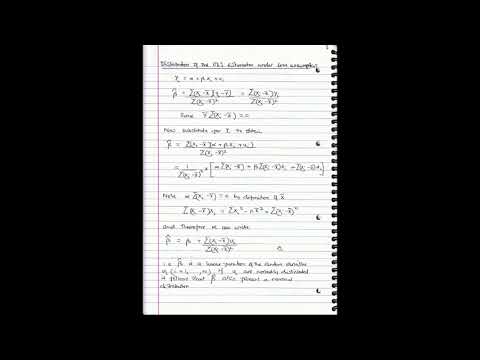 Distribution of the OLS estimator under CNR assumptions
Yᵢ = α + βxᵢ + uᵢ
β̂ = Σ(xᵢ - x̄)(Yᵢ - Ȳ) / Σ(xᵢ - x̄)² = Σ(xᵢ - x̄)Yᵢ / Σ(xᵢ - x̄)²
Since Ȳ Σ(xᵢ - x̄) = 0
Now substitute for Yᵢ to obtain
β̂ = Σ(xᵢ - x̄)(α + βxᵢ + uᵢ) / Σ(xᵢ - x̄)²
= 1 / Σ(xᵢ - x̄)² * [α Σ(xᵢ - x̄) + βΣ(xᵢ - x̄)xᵢ + Σ(xᵢ - x̄)uᵢ]
Note α Σ(xᵢ - x̄) = 0 by definition of x̄
Σ(xᵢ - x̄)xᵢ = Σxᵢ² - nx̄² = Σ(xᵢ - x̄)²
and therefore we can write
β̂ = β + Σ(xᵢ - x̄)uᵢ / Σ(xᵢ - x̄)²
i.e β̂ is a linear function of the random variables
uᵢ (i = 1, ..., n). If uᵢ are normally distributed
it follows that β̂ also has a normal
distribution